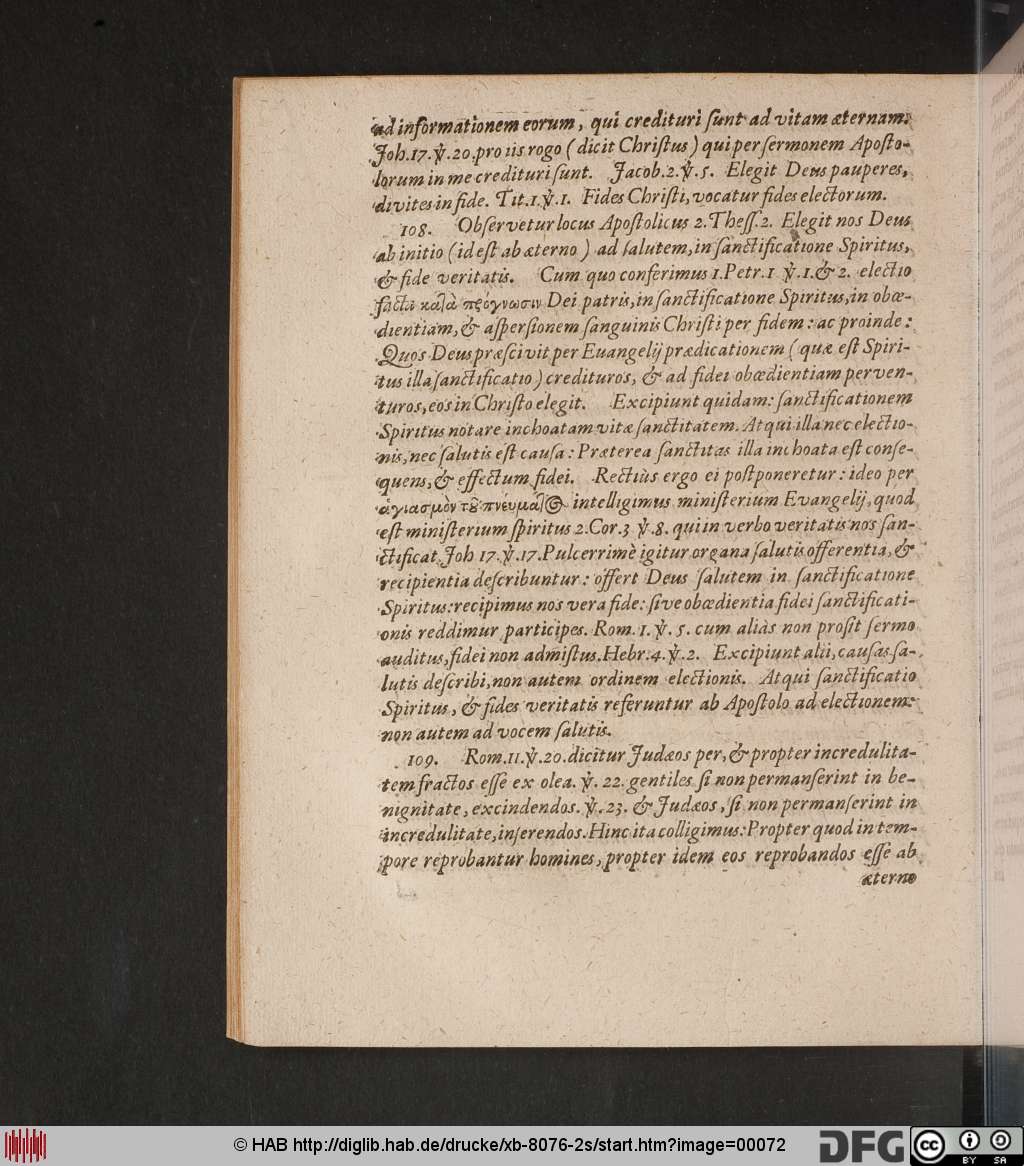 ad informationem eorum, qui credituri ſunt ad vitam æternam.
Joh.17.℣.20. pro iis rogo (dicit Chriſtus) qui per ſermonem Apoſto-
lorum in me credituri ſunt. Jacob.2.℣.5. Elegit Deus pauperes,
divites in fide. Tit.1.℣.1. Fides Chriſti, vocatur fides electorum.
108. Obſervetur locus Apoſtolicus 2.Theſſ.2. Elegit nos Deus
ab initio (id eſt ab æterno) ad ſalutem, in ſanctificatione Spiritus,
& fide veritatis. Cum quo conferimus 1.Petr.1 ℣.1.& 2. electio
facta καὶὰ πρόγνωσιν Dei patris, in ſanctificatione Spiritus, in obœ-
dientiam, & aſperſionem ſanguinis Chriſti per fidem: ac proinde:
Quos Deus præſcivit per Euangelij prædicationem (quæ eſt Spiri-
tus illa ſanctificatio) credituros, & ad fidei obœdientiam perven-
turos, eos in Chriſto elegit. Excipiunt quidam: ſanctificationem
Spiritus notare inchoatam vitæ ſanctitatem. Atqui illa nec electio-
nis, nec ſalutis eſt cauſa: Præterea ſanctitas illa inchoata eſt conſe-
quens, & effectum fidei. Rectiùs ergo ei poſtponeretur: ideo per
ἁγιασμὸν τȣ̃ πνέυμαῖ〇 intelligimus miniſterium Evangelij, quod
eſt miniſterium ſpiritus 2.Cor.3 ℣.8. qui in verbo veritatis nos ſan-
ctificat Joh 17.℣.17. Pulcerrimè igitur organa ſalutis offerentia, &
recipientia deſcribuntur: offert Deus ſalutem in ſanctificatione
Spiritus: recipimus nos vera fide: ſive obœdientia fidei ſanctificati-
onis reddimur participes. Rom.1.℣.5. cum aliàs non proſit ſermo
auditus, fidei non admiſtus. Hebr.4.℣.2. Excipiunt alii, cauſas ſa-
lutis deſcribi, non autem ordinem electionis. Atqui ſanctificatio
Spiritus, & fides veritatis referuntur ab Apoſtolo ad electionem:
non autem ad vocem ſalutis.
109. Rom.11.℣.20. dicitur Judæos per, & propter incredulita-
tem fractos eſſe ex olea. ℣.22. gentiles ſi non permanſerint in be-
nignitate, excindendos. ℣.23. & Judæos, ſi non permanſerint in
incredulitate, inſerendos. Hinc ita colligimus: Propter quod in tem-
pore reprobantur homines, propter idem eos reprobandos eſſe ab
æterno
© HAB http://diglib.hab.de/drucke/xb-8076-2s/start.htm?image=00072
DFG
cc BY SA